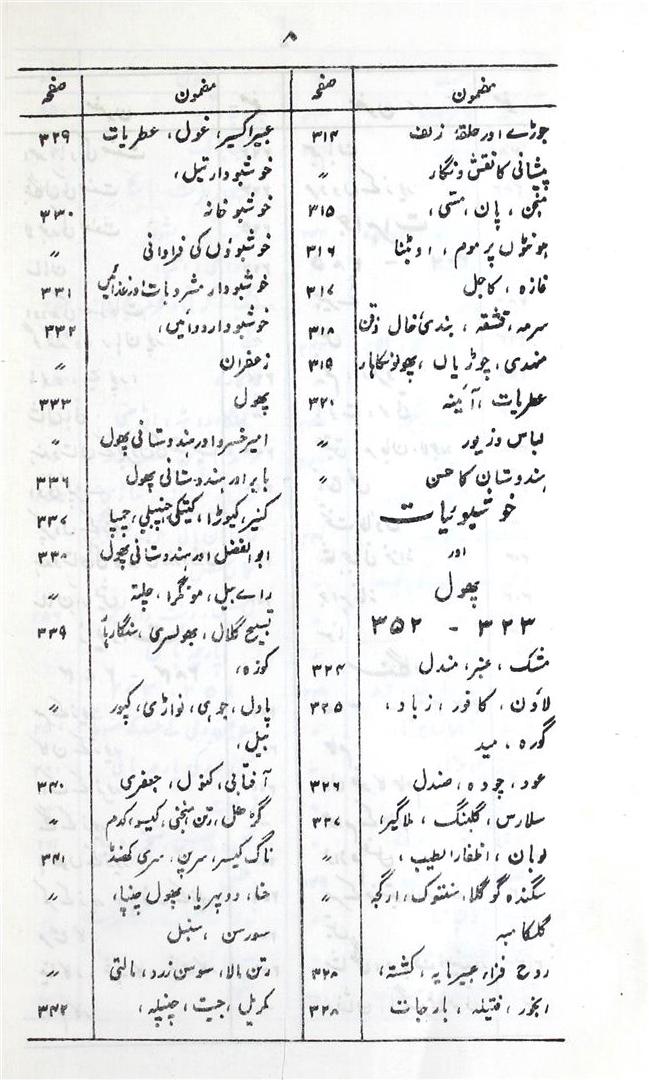 ۸
مضمون صفحہ
جوڑے اور حلقۂ زلف ۳۱۴
پیشانی کا نقش و نگار ״
منجن ، پان ، مسّی ، ۳۱۵
ہونٹوں پر موم ، اوبٹنا ۳۱۶
غازہ ، کاجل ۳۱۷
سرمہ ، قشقہ ، بندی، خال ذقن ۳۱۸
مہندی، چوڑیاں ، پھولونکا ہار ۳۱۹
عطریات ، آئینہ ۳۲۰
لباس و زیور ״
ہندوستان کا حسن ״
خوشبوئیات
اور
پھول
۳۲۳ - ۳۵۲
مشک ، عنبر، مندل ۳۲۴
لاون ، کافور ، زباد ، ۳۲۵
گورہ ، مید
عود ، چودہ ، صندل ۳۲۶
سلارس ، گلبنگ ، ملاگیر، ۳۲۷
لوبان ، اظفار الطیب ، ״
سگندہ گوگلا، ارگجہ ״
گلکامہ
روح فزا، عبیر مایہ ، کشتہ ، ۳۲۸
بخور ، فتیلہ ، بارجات ۳۲۸
مضمون صفحہ
عبیر اکسیر، غول ، عطریات ۳۲۹
خوشبودار تیل ،
خوشبو خانہ ۳۳۰
خوشبوؤں کی فراوانی ״
خوشبودار مشروبات اور غذائیں ۳۳۱
خوشبودار دوائیں ، ۳۳۲
زعفران ״
پھول ۳۳۳
امیر خسرو اور ہندوستانی پھول ״
بابر اور ہندوستانی پھول ۳۳۶
کنیر، کیوڑا ، کیتکی، چنبیلی، چمپا ۳۳۷
ابو الفضل اور ہندوستانی پھول ۳۳۸
راے بیل ، مونگرا ، چلتہ ״
تسبیح گلال ، بھولسری ، سنگارہار ۳۳۹
کوزہ ،
پاڈل ، جوہی ، نواڑی، کپور ״
بیل ،
آفتابی ، کنول ، جعفری ۳۴۰
گڑھل ، رتن منجنی ، کیسو، کدم ״
ناگ کیسر، سرپن، سری کھنڈ ۳۴۱
حنا، دوپہریا، پھول چنپا، ״
سورسن ، سنبل
رتن مالا، سوسن زرد ، مالتی ״
کریل ، جیت ، چنپلہ ، ۳۴۲